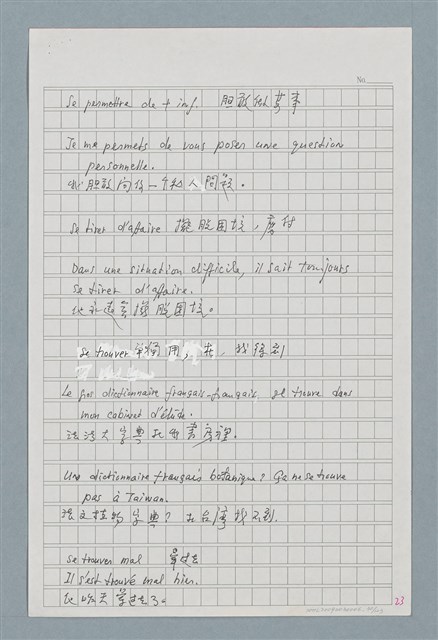 No.
Se permettre de + inf. 胆敢做某事
Je me permets de vous poser une question
personnelle.
我胆敢向你一个私人問題。
Se tirer d'affaire 擺脫困境,應付
Dans une situation difficile, il sait toujours
se tirer d'affaire.
他永遠會擺脫困境。
se trouver 單獨用,在,找得到
Le gros dictionnaire français-français se trouve dans
mon cabinet d'étude.
法法大字典在我書房裡。
Une dictionnaire français botanique? Ça ne se trouve
pas à Taiwan.
法文植物字典?在台灣找不到.
se trouver mal 暈过去
Il s'est trouvé mal hier.
他昨天暈过去了。
23